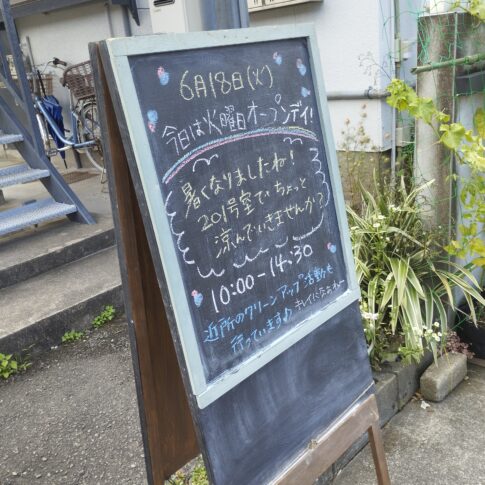 6月18日(火)
今日は火曜日オープンデイ!
暑くなりましたね!
201号室で、ちょっと
涼んでいきませんか?
10:00-14:30
近所のクリーンアップ活動も
行っています♪